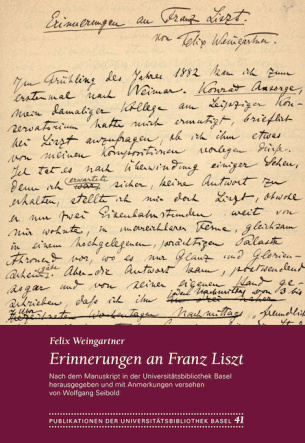 Erinnerungen an Franz Liszt.
von Felix Weingartner.
Im Frühling des Jahres 1882 kam ich zum
erstenmal nach Weimar. Konrad Ansorge,
mein damaliger Kollege am Leipziger Kon-
servatorium hatte mich ermutigt, brieflich
bei Liszt anzufragen, ob ich ihm etwas
von meinen Kompositionen vorlegen dürfe.
Ich tat es nach Überwindung einiger Scheu,
denn ich erwartete sicher, keine Antwort zu
erhalten, stellte ich mir doch Liszt, obwohl
er nur zwei Eisenbahnstunden weit von
mir wohnte, in unerreichbarer Ferne, gleichsam
in einem hochgelegenen, prächtigen Palaste
thronend vor, wo es nur Glanz und Glorien-
Aber die Antwort kam, postwendend
sogar und von seiner eigenen Hand ge-
schrieben, dass ich ihm
Nachmittags, freundlich
Felix Weingartner
Erinnerungen an Franz Liszt
Nach dem Manuskript in der Universitätsbibliothek Basel
herausgegeben und mit Anmerkungen versehen
von Wolfgang Seibold
PUBLIKATIONEN DER UNIVERSITÄTSBIBLIOTHEK BASEL 41